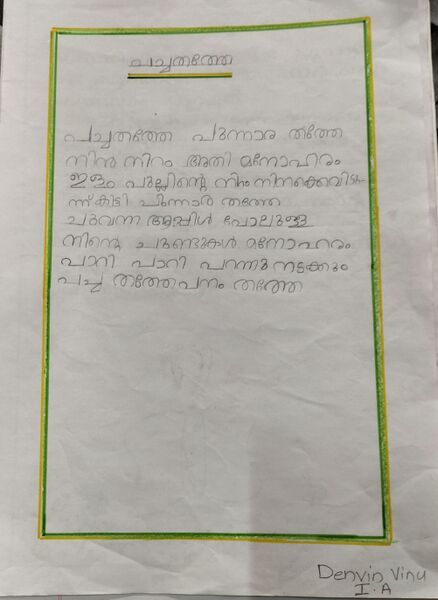 പച്ചതത്തേ
പച്ചതത്തേ പുന്നാര തത്തേ
നിൻ നിറം അതി മനോഹരം
ഇളം പുല്ലിന്റെ നിറം നിനക്കെവിട
ന്ന് കിട്ടി പുന്നാര തത്തേ
ചുവന്ന ആപ്പിൾ പോലുള്ള
നിന്റെ ചുണ്ടുകൾ മനോഹരം
പാറി പാറി പറന്നു നടക്കും
പച്ച തത്തേ പനം തത്തേ
Denvin Vinu
I.A